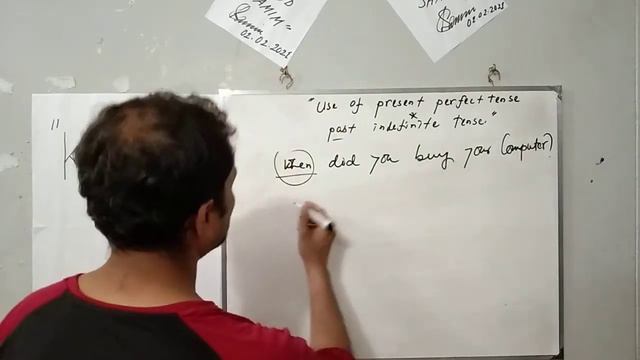 02.02.2021
02.02.2021
"Use of present perfect tense
*
past indefinite tense."
When did you buy your Computer?
"